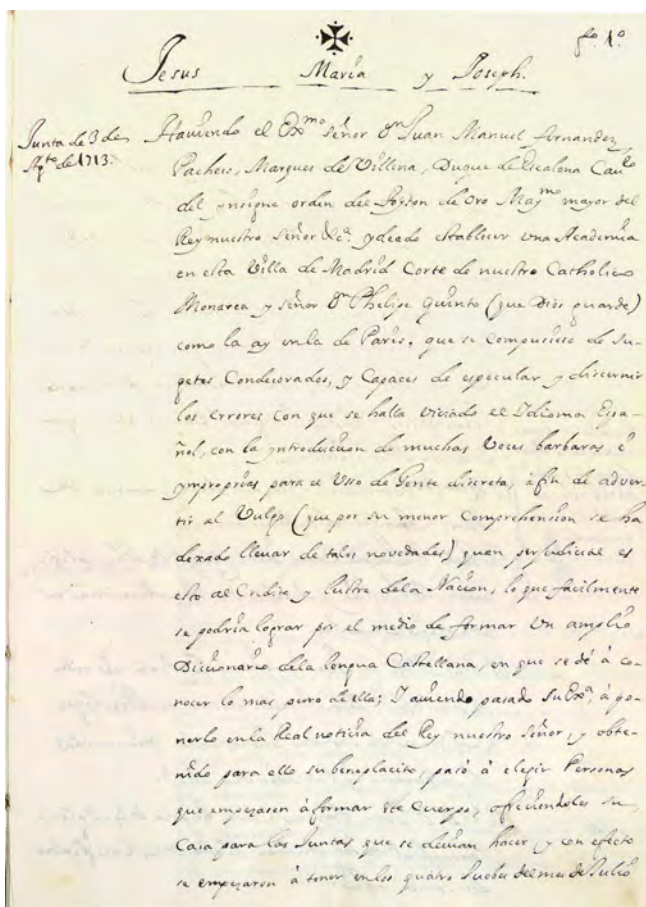 fo. 1o.
Jesus Maria y Joseph.
Junta de 3 de
Agto de 1713.
Haviendo el Exmo Señor Dn Juan Manuel fernandez
Pacheco, Marques de Villena, Duque de Escalona Cauro
del ynsigne orden del Toyson de Oro Maymo mayor del
Rey nuestro Señor &ca. ydeado establecer una Academia
en esta Villa de Madrid Corte de nuestro Catholico
Monarca y Señor Dn Phelipe Quinto (que Dios guarde)
como la ay en la de Paris, que se compusiese de Su-
getos Condecorados, y Capaces de especular y discernir
los errores con que se halla viciado el Idioma Espa-
ñol, con la yntroducion de muchas Voces barbaras, é
ymproprias para el Vsso de Gente discreta, à fin de adver-
tir al Vulgo (que por su menor Comprehension se ha
dexado llevar de tales novedades) quan perjudicial es
esto al Credito y lustre dela Nacion, lo que facilmente
se podria lograr por el medio de formar Vn amplio
Diccionario dela lengua Castellana, en que se dé à co-
nocer lo mas puro de ella; I auiendo pasado Su Exa. à po-
nerlo en la Real noticia del Rey nuestro Señor, y obte-
nido para ello su beneplacito, pasó à elegir Personas
que empezasen à formar este Cuerpo, ofreciendoles su
Casa para las Juntas que se deuian hacer, y con efecto
se empezaron à tener en los quatro Jueves del mes de Julio